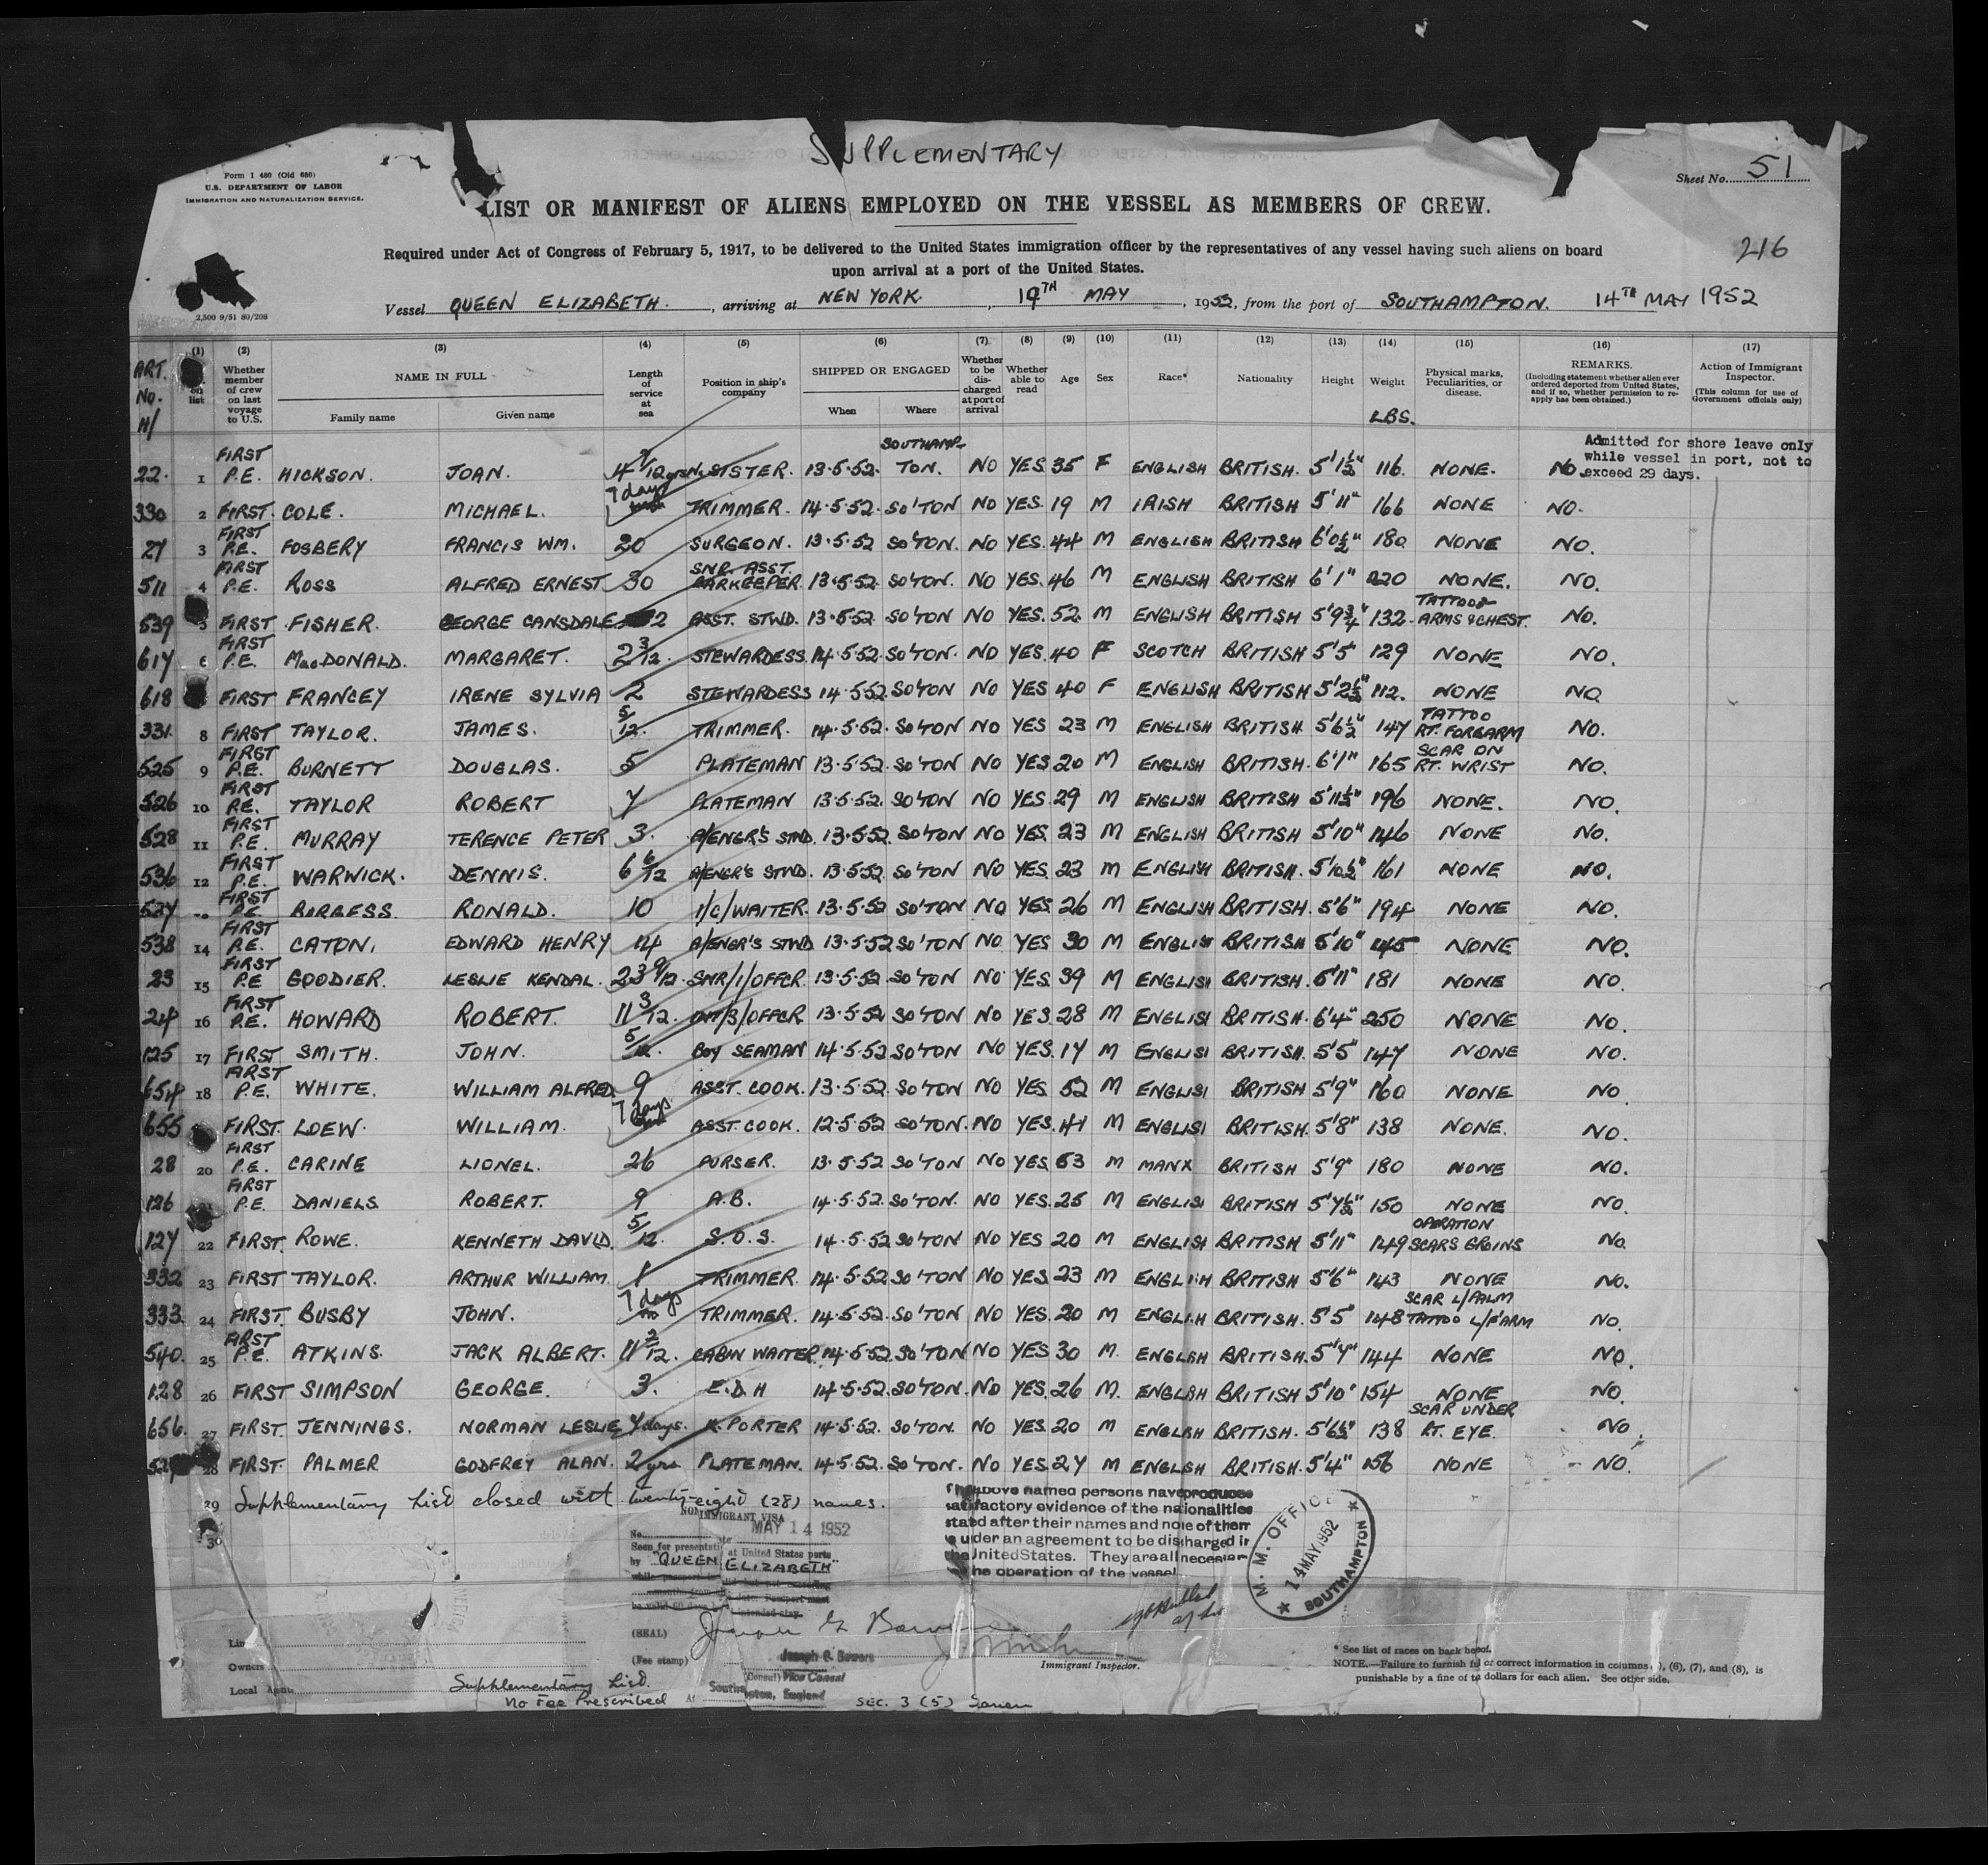 SUPPLEMENTARY
Form I 480 (Old 680)
U.S. DEPARTMENT OF LABOR
IMMIGRATION AND NATURALIZATION SERVICE.
Sheet No. 51
LIST OR MANIFEST OF ALIENS EMPLOYED ON THE VESSEL AS MEMBERS OF CREW.
216
Required under Act of Congress of February 5, 1917, to be delivered to the United States immigration officer by the representatives of any vessel having such aliens on board
upon arrival at a port of the United States.
Vessel QUEEN ELIZABETH. , arriving at NEW YORK. , 19TH MAY , 1952, from the port of SOUTHAMPTON. 14TH MAY 1952
2,500 9/51 80/208
(1) (2) (3) (4) (5) (6) (7) (8) (9) (10) (11) (12) (13) (14) (15) (16) (17)
ART. No. N/ on list Whether member of crew on last voyage to U.S. NAME IN FULL Family name Given name Length of service at sea Position in ship's company SHIPPED OR ENGAGED When Where Whether to be discharged at port of arrival Whether able to read Age Sex Race* Nationality Height Weight LBS. Physical marks, Peculiarities, or disease. REMARKS. (Including statement whether alien ever ordered deported from United States, and if so, whether permission to re-apply has been obtained.) Action of Immigrant Inspector. (This column for use of Government officials only)
Admitted for shore leave only
while vessel in port, not to
exceed 29 days.
22. 1 FIRST P.E. HICKSON. JOAN. 4 /12 yrs N. SISTER. 13.5.52. SOUTHAMPTON. NO YES 35 F ENGLISH BRITISH. 5'1½" 116. NONE. NO.
330 2 FIRST. COLE. MICHAEL. 7 days TRIMMER. 14.5.52. SO'TON NO YES. 19 M IRISH BRITISH 5'11" 166 NONE NO.
27 3 FIRST P.E. FOSBERY FRANCIS WM. 20 SURGEON. 13.5.52 SO'TON. NO YES. 44 M ENGLISH BRITISH 6'0½" 180 NONE NO.
511 4 FIRST P.E. ROSS ALFRED ERNEST 30 SNR. ASST. BARKEEPER. 13.5.52 SO'TON. NO YES. 46 M ENGLISH BRITISH 6'1" 220 NONE. NO.
539 5 FIRST FISHER. GEORGE CANSDALE 2 ASST. STWD. 13.5.52. SO'TON NO YES. 52 M ENGLISH BRITISH 5'9¾" 132. TATTOOS ARMS & CHEST. NO.
617 6 FIRST P.E. MacDONALD. MARGARET. 2 3/12. STEWARDESS 14.5.52. SO'TON. NO YES. 40 F SCOTCH BRITISH 5'5" 129 NONE NO.
618 FIRST FRANCEY IRENE SYLVIA 2 STEWARDESS 14.5.52. SO'TON NO YES 40 F ENGLISH BRITISH 5'2½" 112. NONE NO
331 8 FIRST TAYLOR. JAMES. 5/12. TRIMMER. 14.5.52. SO'TON NO YES 23 M ENGLISH BRITISH. 5'6½" 147 TATTOO RT. FOREARM NO.
525 9 FIRST P.E. BURNETT DOUGLAS. 5 PLATEMAN 13.5.52. SO'TON NO YES 20 M ENGLISH BRITISH. 6'1" 165 SCAR ON RT. WRIST NO.
526 10 FIRST P.E. TAYLOR ROBERT 7 PLATEMAN 13.5.52. SO'TON NO YES. 29 M ENGLISH BRITISH 5'11½" 196 NONE. NO.
528 11 FIRST P.E. MURRAY TERENCE PETER 3. A/ENGR'S STWD. 13.5.52 SO'TON NO YES. 23 M ENGLISH BRITISH 5'10" 146 NONE NO.
536 12 FIRST P.E. WARWICK. DENNIS. 6 6/12 A/ENGR'S STWD. 13.5.52. SO'TON NO YES. 23 M ENGLISH BRITISH. 5'10½" 161 NONE NO.
537 FIRST P.E. BURGESS. RONALD. 10 1/C/WAITER. 13.5.52 SO'TON NO YES 26 M ENGLISH BRITISH. 5'6" 194 NONE NO.
538 14 FIRST P.E. CATON. EDWARD HENRY 14 A/ENGR'S STWD 13.5.52 SO'TON NO YES 30 M ENGLISH BRITISH 5'10" 145 NONE NO.
23 15 FIRST P.E GOODIER. LESLIE KENDAL. 23 9/12. SNR/1/OFFCR 13.5.52 SO'TON NO YES. 39 M ENGLISH BRITISH. 5'11" 181 NONE NO.
24 16 FIRST P.E. HOWARD ROBERT. 11 3/12. /3/OFFCR 13.5.52 SO'TON NO YES. 28 M ENGLISH BRITISH. 6'4" 250 NONE NO.
125 17 FIRST SMITH. JOHN. 5/12. BOY SEAMAN 14.5.52 SO'TON NO YES. 17 M ENGLISH BRITISH. 5'5" 147 NONE NO.
654 18 FIRST P.E. WHITE. WILLIAM ALFRED 9 ASST. COOK. 13.5.52. SO'TON NO YES 52 M ENGLISH BRITISH 5'9" 160 NONE NO
655 FIRST. LOEW. WILLIAM. 7 days ASST. COOK. 12.5.52 SO'TON. NO YES. 41 M ENGLISH BRITISH. 5'8" 138 NONE. NO.
28 20 FIRST P.E. CARINE LIONEL. 26 PURSER. 13.5.52 SO'TON NO YES. 53 M MANX BRITISH 5'9" 180 NONE NO.
126 FIRST P.E. DANIELS ROBERT. 9 A.B. 14.5.52. SO'TON. NO YES. 25 M ENGLISH BRITISH 5'7½" 150 NONE NO.
127 22 FIRST. ROWE. KENNETH DAVID. 5/12. S.O.S. 14.5.52 SO'TON NO YES 20 M ENGLISH BRITISH 5'11" 149 OPERATION SCARS GROINS NO.
332 23 FIRST TAYLOR. ARTHUR WILLIAM. 1 TRIMMER. 14.5.52 SO'TON NO YES. 23 M ENGLISH BRITISH 5'6" 143 NONE NO.
333. 24 FIRST. BUSBY JOHN. 7 days TRIMMER. 14.5.52. SO'TON NO YES. 20 M ENGLISH BRITISH. 5'5" 148 SCAR L/PALM TATTOO L/F'ARM NO.
540. 25 FIRST P.E. ATKINS. JACK ALBERT. 11 2/12. CABIN WAITER. 14.5.52. SO'TON NO YES 30 M. ENGLISH BRITISH. 5'7" 144 NONE NO.
128 26 FIRST SIMPSON GEORGE. 3. E.D.H 14.5.52. SO'TON. NO YES. 26 M. ENGLISH BRITISH 5'10" 154 NONE NO.
656. 27 FIRST. JENNINGS. NORMAN LESLIE 7 days. K. PORTER 14.5.52. SO'TON. NO YES. 20 M ENGLISH BRITISH. 5'6½" 138 SCAR UNDER RT. EYE. NO.
28 FIRST. PALMER GODFREY ALAN. 2 yrs PLATEMAN. 14.5.52. SO'TON. NO YES. 27 M ENGLISH BRITISH. 5'4" 156 NONE NO.
29 Supplementary List closed with twenty-eight (28) names.
The above named persons have produced
satisfactory evidence of the nationalities
stated after their names and none of them
is under an agreement to be discharged in
the United States. They are all necessary
the operation of the vessel
NONIMMIGRANT VISA
No. MAY 14 1952
Seen for presentation at United States ports
by "QUEEN ELIZABETH"
M. M. OFFICE
14 MAY 1952
SOUTHAMPTON
(SEAL)
(Fee stamp)
Joseph G. Bowers
(Consul) Vice Consul
Southampton, England
Immigrant Inspector.
Owners
Local Agents
Supplementary List.
No Fee Prescribed
SEC. 3 (5)
* See list of races on back hereof.
NOTE.—Failure to furnish full or correct information in columns (6), (7), and (8), is
punishable by a fine of ten dollars for each alien. See other side.